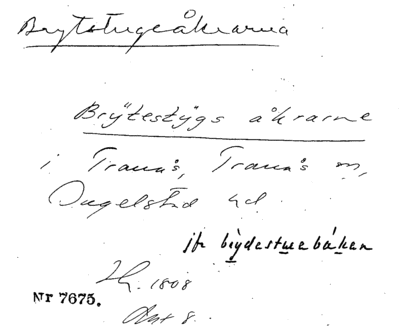 Brytstugeåkrarna
Brÿtestÿgs åkrarne
i Tranås, Tranås sn,
Ingelstad hd.
jfr brydestuebakken
1808
Akt 8.
Nr 7675.